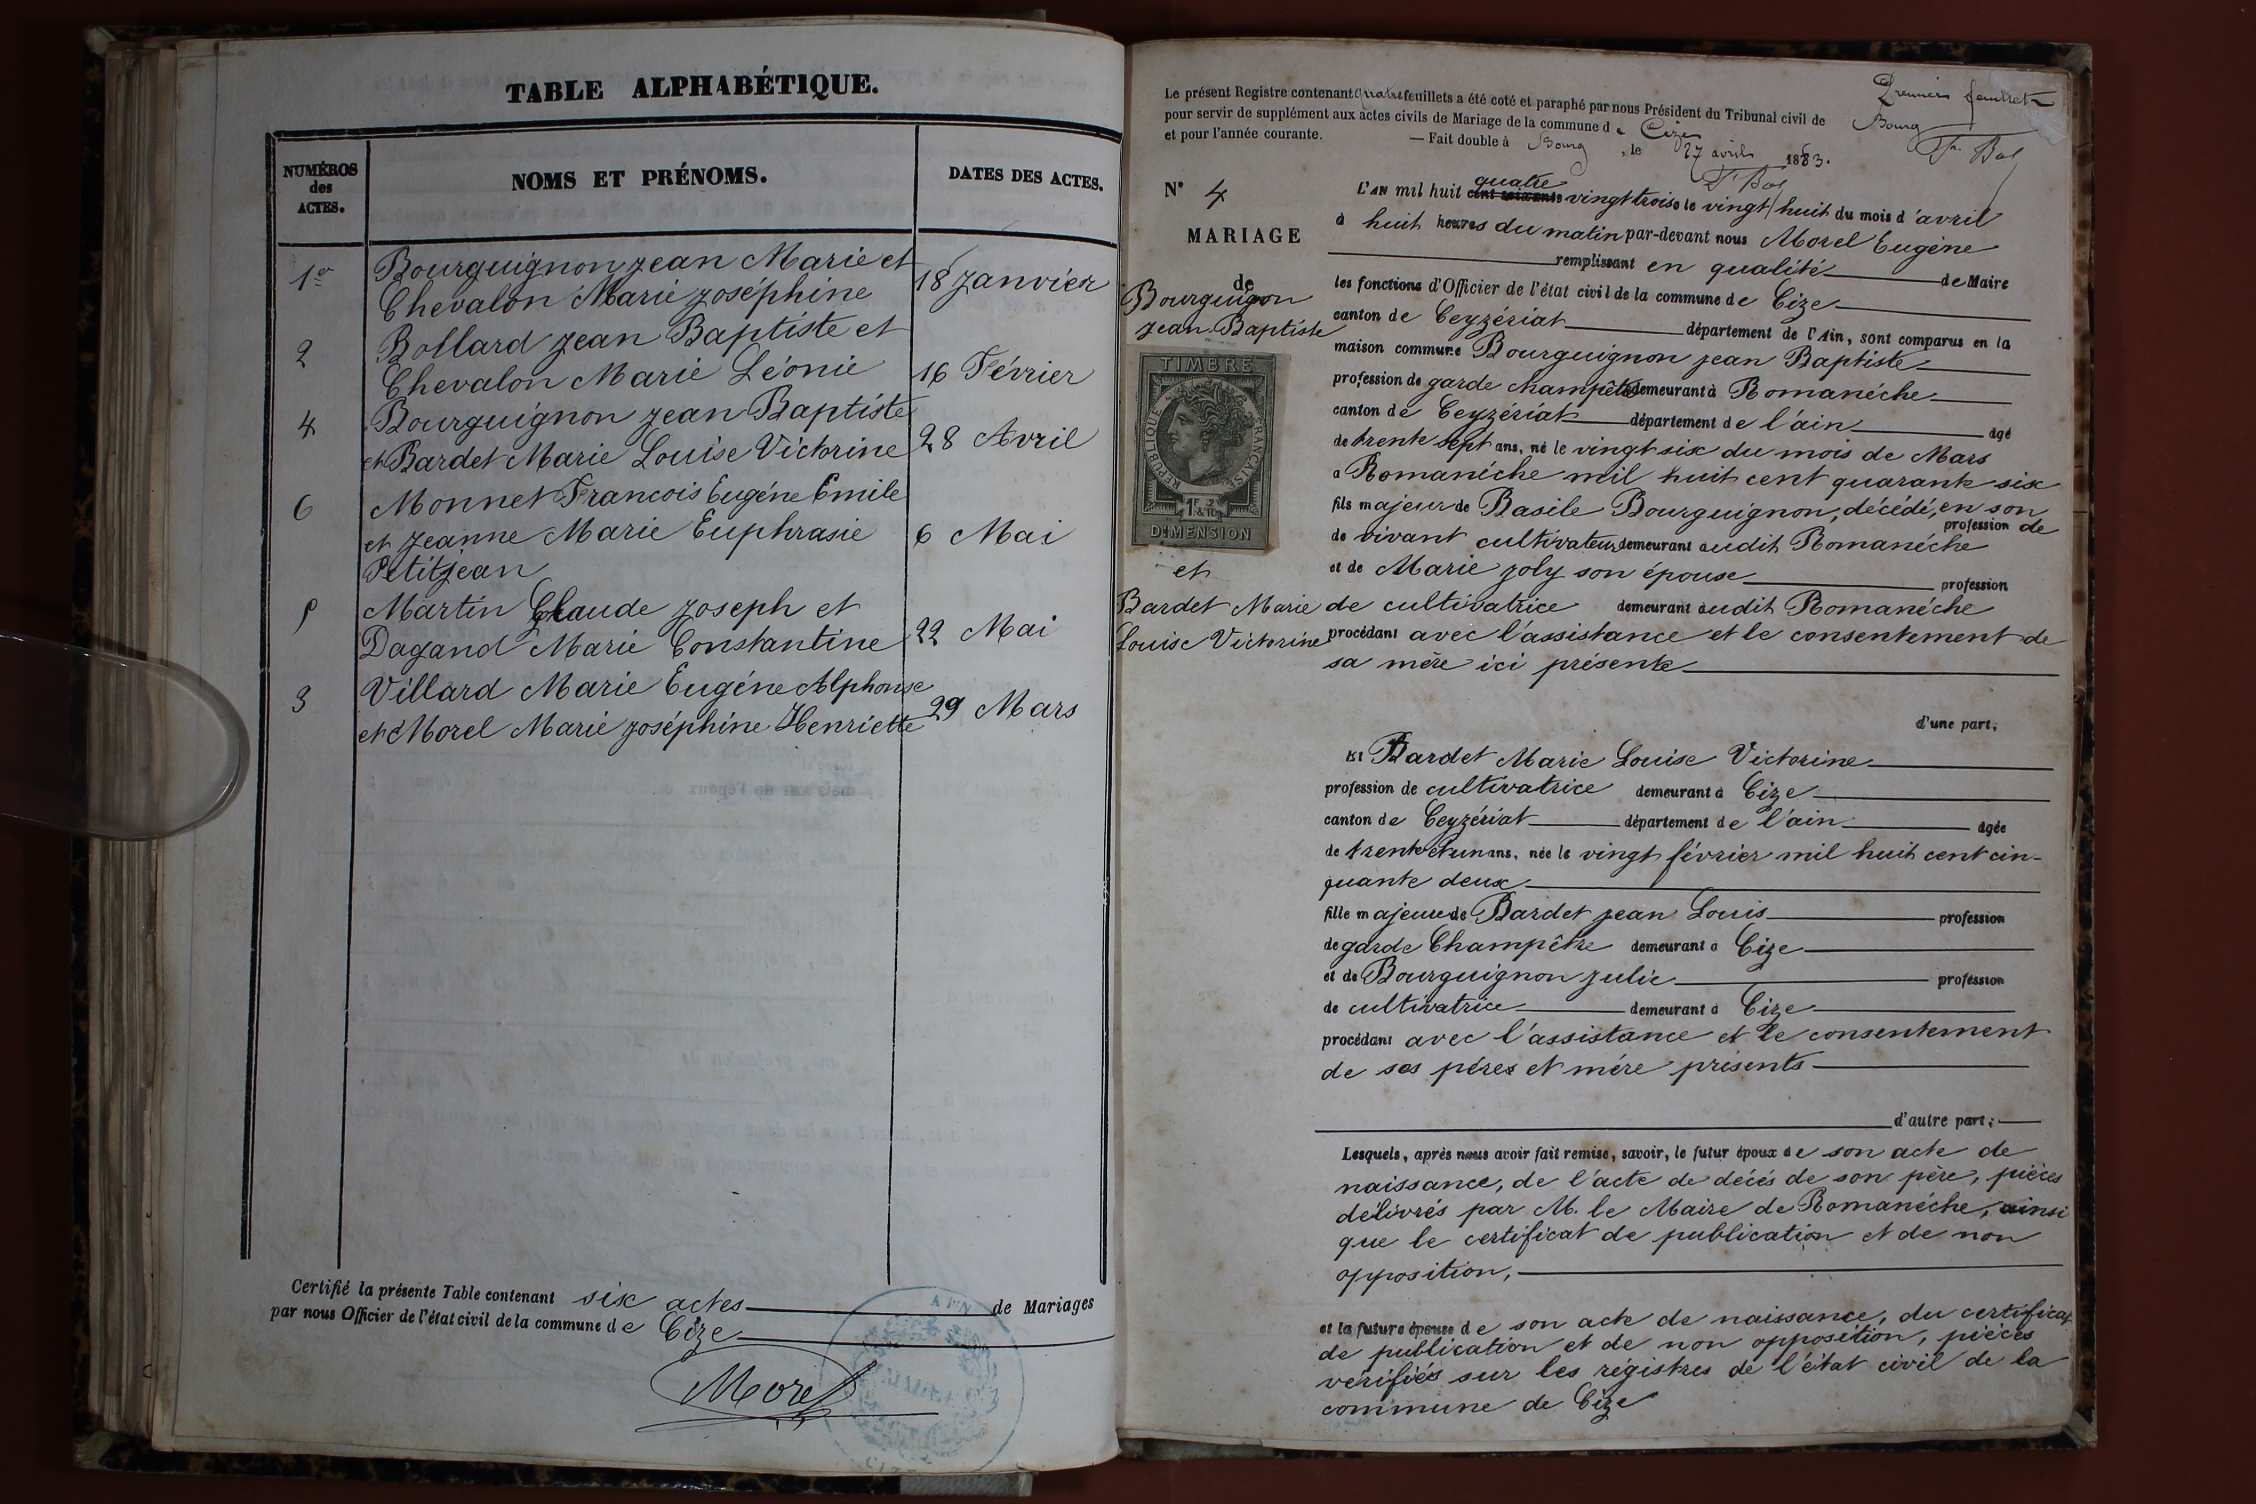 TABLE ALPHABÉTIQUE.
NUMÉROS des ACTES.
NOMS ET PRÉNOMS.
DATES DES ACTES.
1er
Bourguignon Jean Marie et
Chevalon Marie Joséphine
18 Janvier
2
Bollard Jean Baptiste et
Chevalon Marie Léonie
16 Février
4
Bourguignon Jean Baptiste
et Bardet Marie Louise Victorine
28 Avril
6
Monnet Francois Eugéne Emile
et Jeanne Marie Euphrasie
Petitjean
6 Mai
5
Martin Claude Joseph et
Dagand Marie Constantine
22 Mai
3
Villard Marie Eugéne Alphonse
et Morel Marie Joséphine Henriette
29 Mars
Certifié la présente Table contenant six actes de Mariages
par nous Officier de l'état civil de la commune de Cize
Morel
AIN
Le présent Registre contenant quatre feuillets a été coté et paraphé par nous Président du Tribunal civil de Bourg
pour servir de supplément aux actes civils de Mariage de la commune de Cize
et pour l'année courante. — Fait double à Bourg, le 27 avril 1883.
Premier feuillet
N° 4
MARIAGE
de
Bourguignon
Jean-Baptiste
TIMBRE
RÉPUBLIQUE FRANÇAISE
DIMENSION
et
Bardet Marie
Louise Victorine
L'AN mil huit cent soixante quatre vingt trois le vingt huit du mois d'avril
à huit heures du matin par-devant nous Morel Eugène
remplissant en qualité de Maire
les fonctions d'Officier de l'état civil de la commune de Cize
canton de Ceyzériat département de l'Ain, sont comparus en la
maison commune Bourguignon Jean Baptiste
profession de garde champêtre demeurant à Romanéche
canton de Ceyzériat département de l'ain âgé
de trente sept ans, né le vingt six du mois de Mars
a Romanéche mil huit cent quarante six
fils majeur de Basile Bourguignon, décédé, en son
profession de
de vivant cultivateur demeurant audit Romanéche
et de Marie Joly son épouse profession
de cultivatrice demeurant audit Romanéche
procédant avec l'assistance et le consentement de
sa mère ici présente
d'une part;
Et Bardet Marie Louise Victorine
profession de cultivatrice demeurant à Cize
canton de Ceyzériat département de l'ain âgée
de trente et un ans, née le vingt février mil huit cent cin-
quante deux
fille majeure de Bardet Jean Louis profession
de garde Champêtre demeurant à Cize
et de Bourguignon Julie profession
de cultivatrice demeurant à Cize
procédant avec l'assistance et le consentement
de ses péres et mére présents
d'autre part;
Lesquels, après nous avoir fait remise, savoir, le futur époux de son acte de
naissance, de l'acte de décés de son père, pièces
délivrés par M. le Maire de Romanéche, ainsi
que le certificat de publication et de non
opposition,
et la future épouse de son acte de naissance, du certificat
de publication et de non opposition, pièces
vérifiées sur les régistres de l'état civil de la
commune de Cize